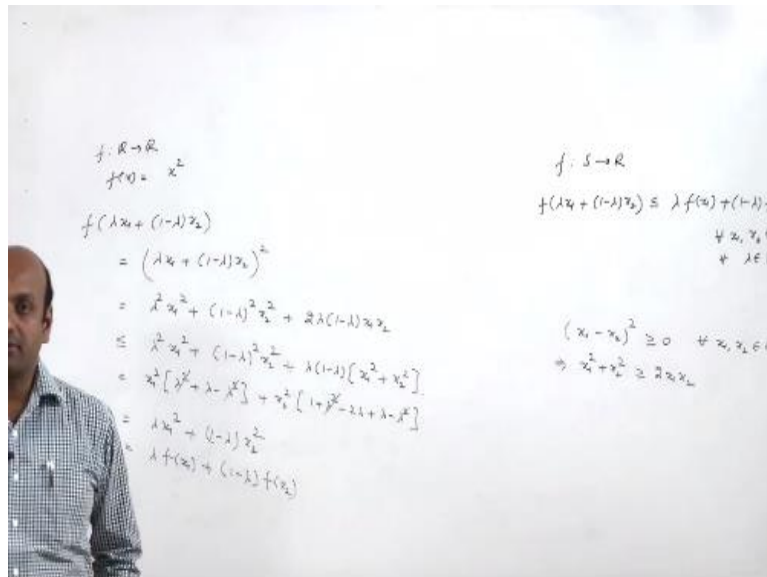 f: R→R
f(x) = x²
f(λx₁ + (1-λ)x₂)
= (λx₁ + (1-λ)x₂)²
= λ²x₁² + (1-λ)²x₂² + 2λ(1-λ)x₁x₂
≤ λ²x₁² + (1-λ)²x₂² + λ(1-λ)[x₁² + x₂²]
= x₁²[λ² + λ - λ²] + x₂²[1 + λ² - 2λ + λ - λ²]
= λx₁² + (1-λ)x₂²
= λf(x₁) + (1-λ)f(x₂)
f: S→R
f(λx₁ + (1-λ)x₂) ≤ λf(x₁) + (1-λ)
∀ x₁, x₂
∀ λ∈
(x₁ - x₂)² ≥ 0 ∀ x₁, x₂ ∈
⇒ x₁² + x₂² ≥ 2x₁x₂